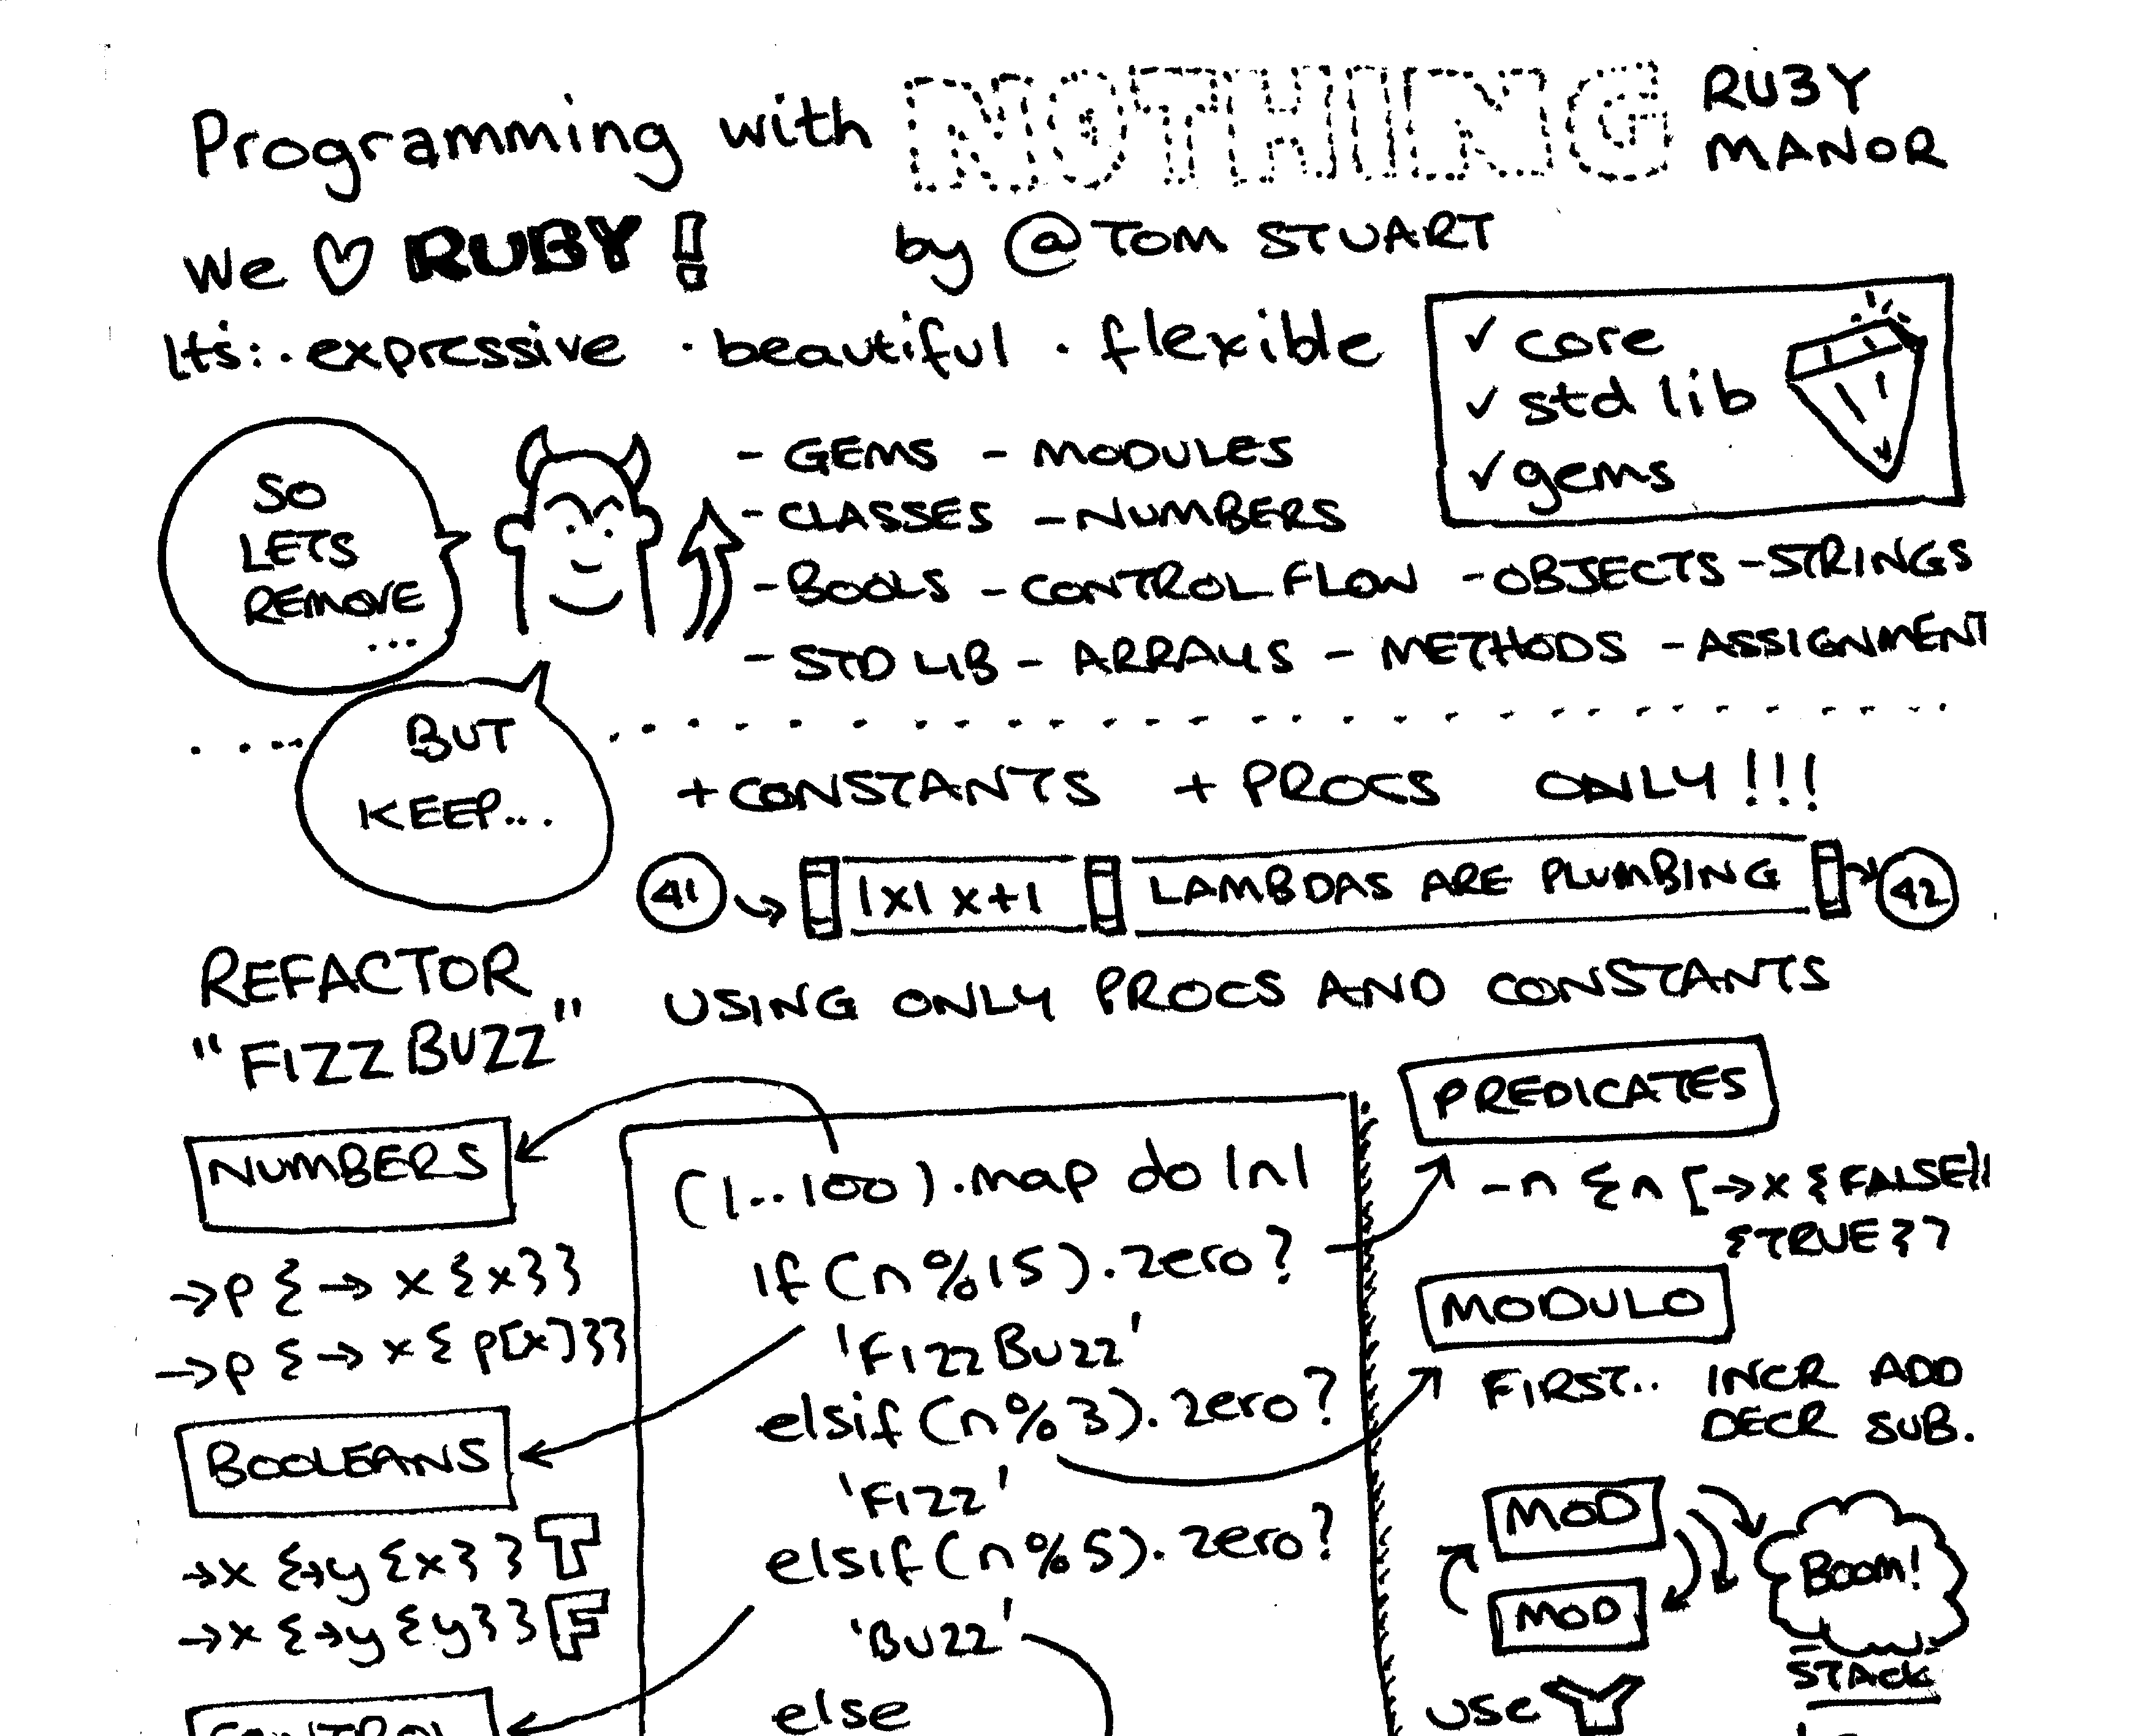 Programming with NOTHING RUBY MANOR
We ♡ RUBY! by @TOM STUART
Its: · expressive · beautiful · flexible
✓ core
✓ std lib
✓ gems
SO
LETS
REMOVE
...
- GEMS - MODULES
- CLASSES - NUMBERS
- BOOLS - CONTROL FLOW - OBJECTS - STRINGS
- STD LIB - ARRAYS - METHODS - ASSIGNMENT
BUT
KEEP...
+ CONSTANTS + PROCS ONLY!!!
41 → |x| x+1 LAMBDAS ARE PLUMBING → 42
REFACTOR
"FIZZBUZZ"
USING ONLY PROCS AND CONSTANTS
NUMBERS
->p {-> x {x}}
->p {-> x { p[x]}}
BOOLEANS
->x {->y {x}} T
->x {->y {y}} F
CONTROL
(1..100).map do |n|
if (n%15).zero?
'FizzBuzz'
elsif (n%3).zero?
'Fizz'
elsif (n%5).zero?
'Buzz'
else
PREDICATES
-n {n [->x {FALSE}]
{TRUE}]
MODULO
FIRST.. INCR ADD
DECR SUB.
MOD
MOD
BOOM!
STACK
USE Y